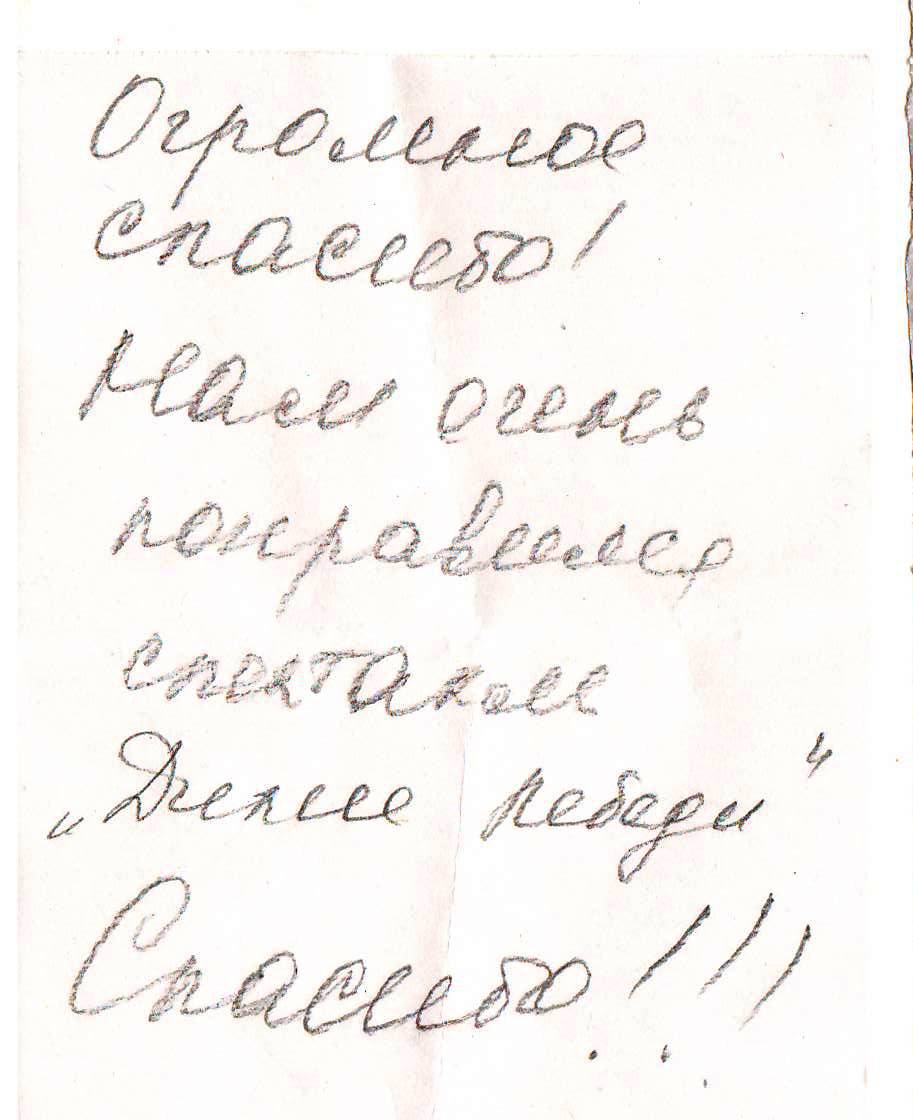 Огромное
спасибо!
Нам очень
понравился
спектакль
„Дикие лебеди“
Спасибо!!!